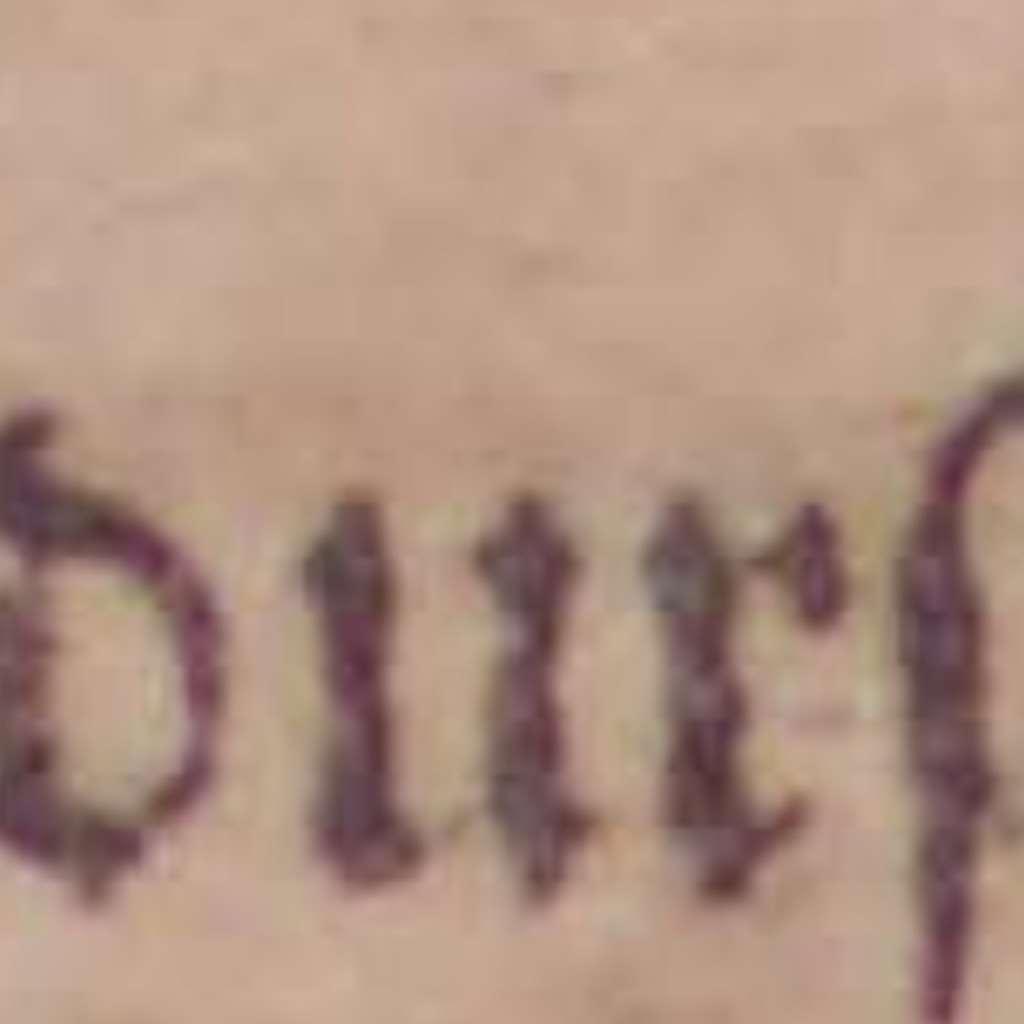 durſ